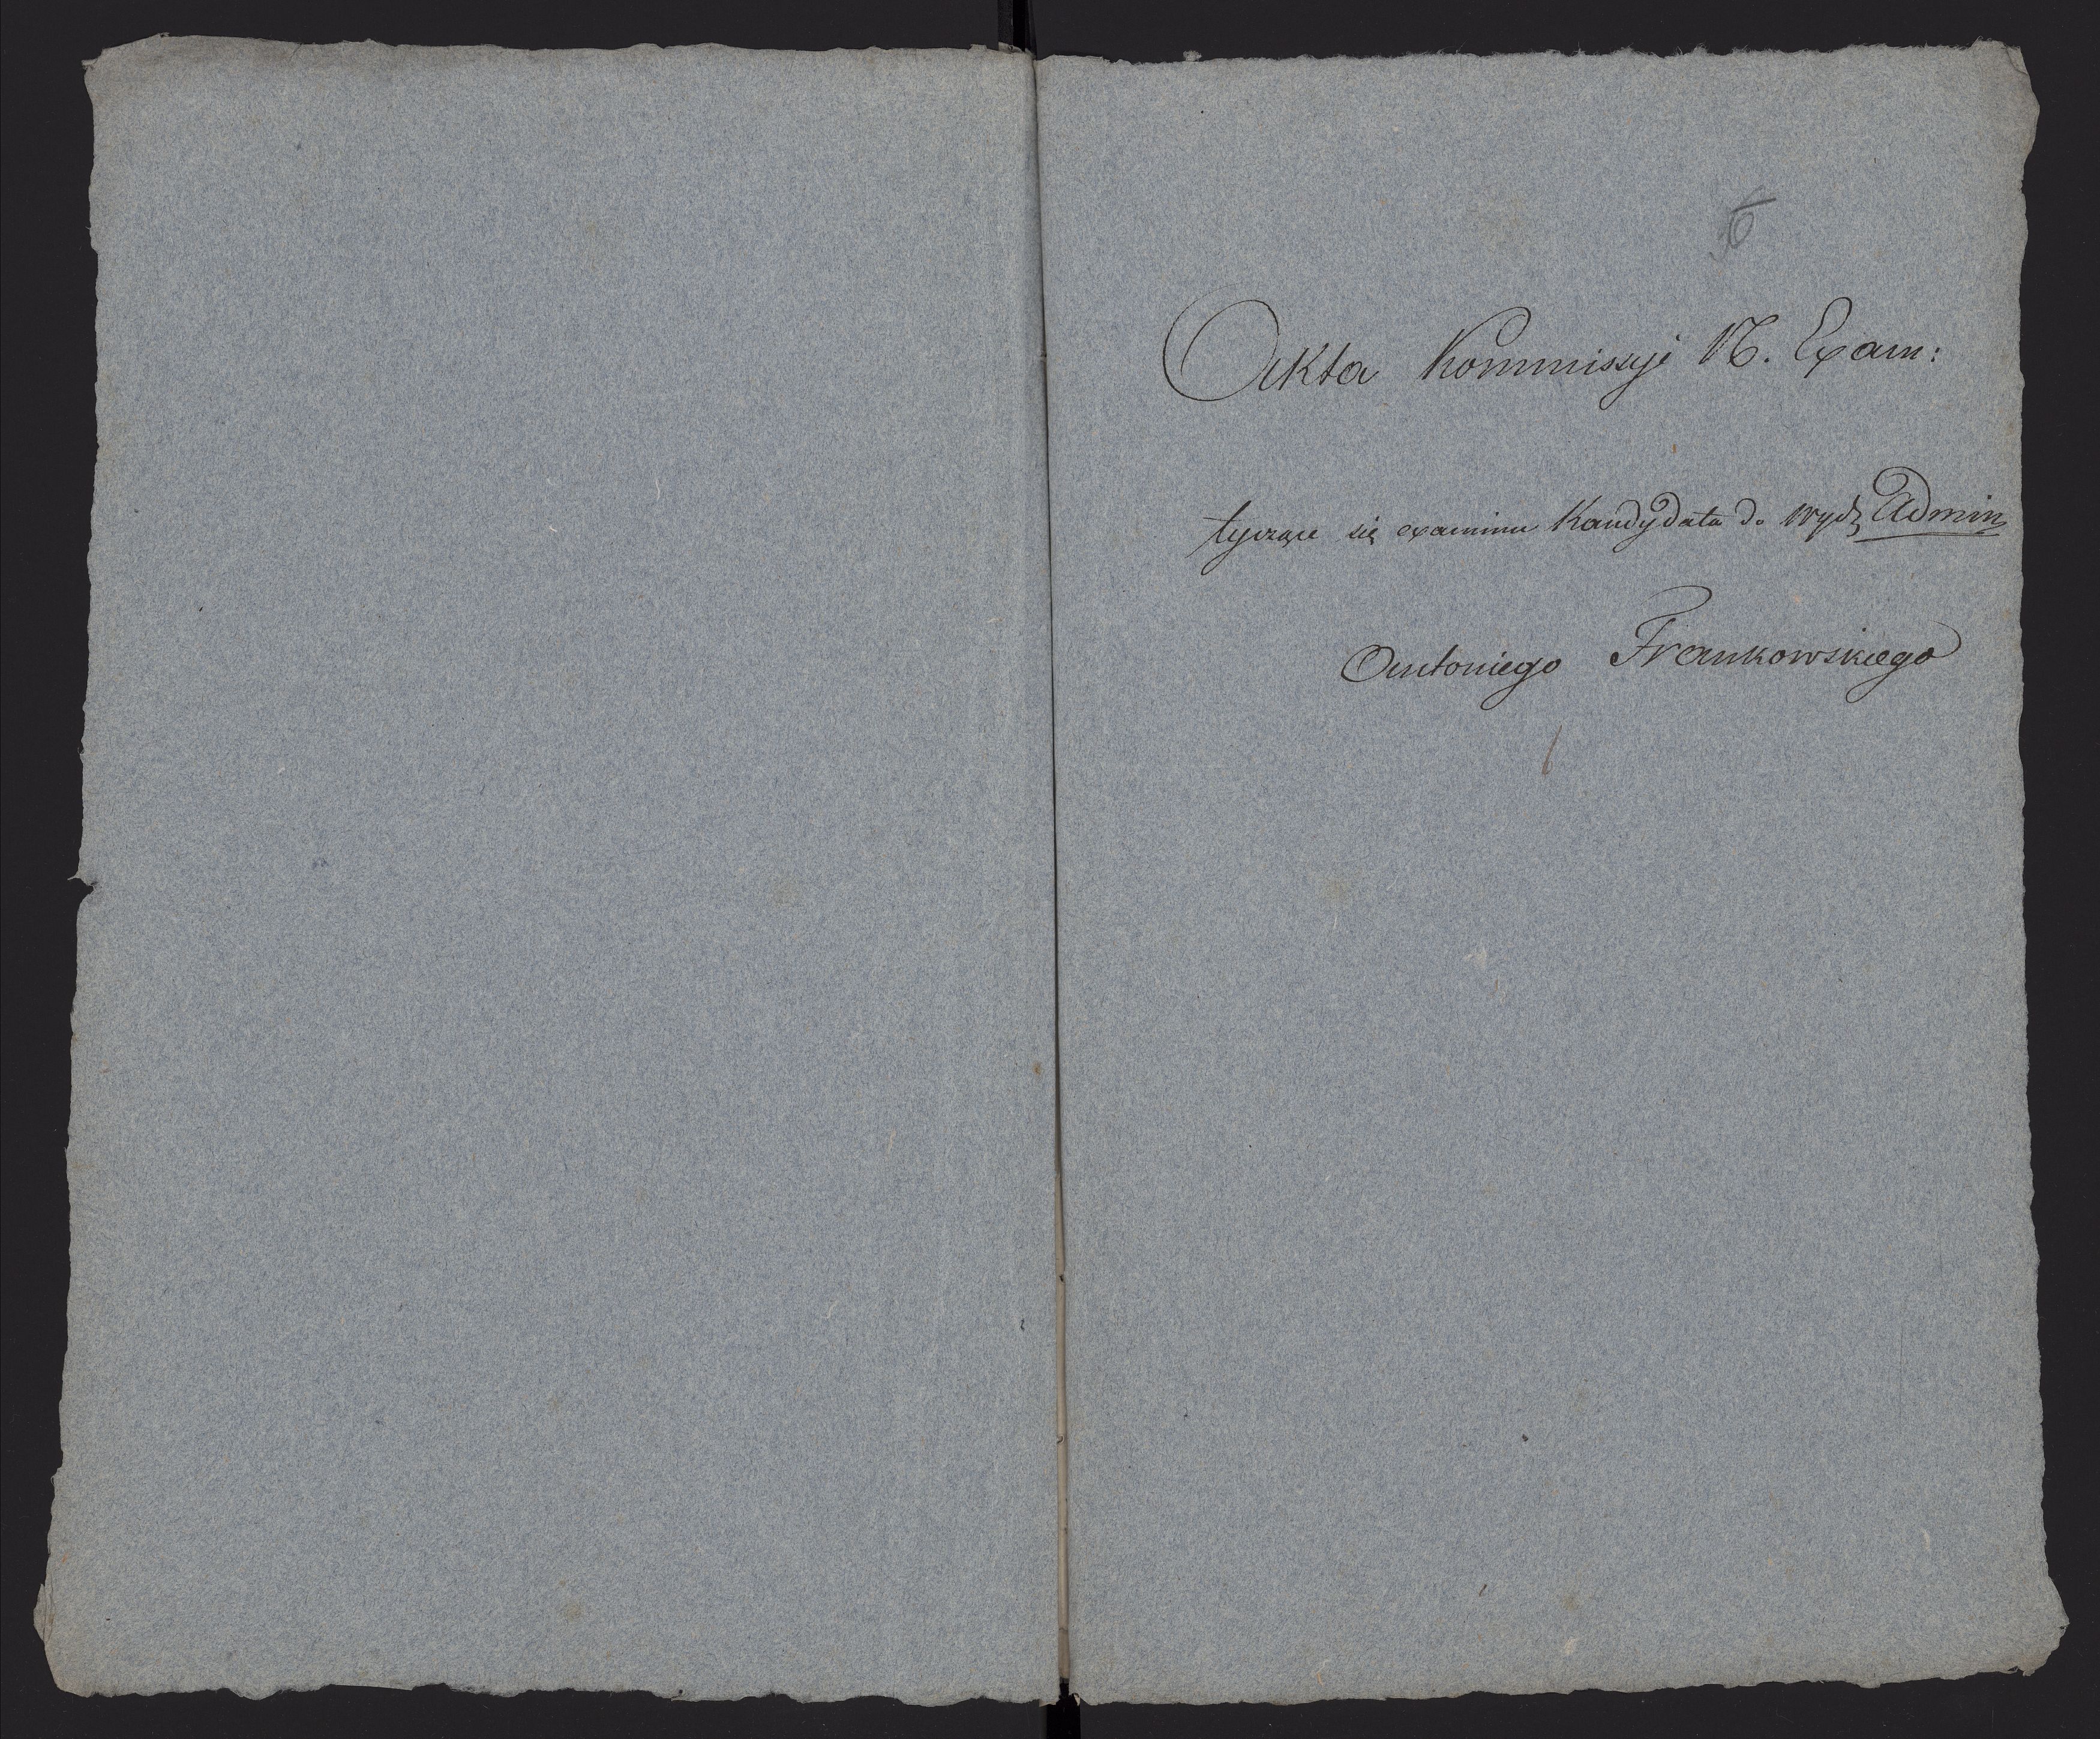 Akta Kommissyi N. Exam:
tyczące się examinu Kandydata do wydz Admin
Antoniego Frankowskiego